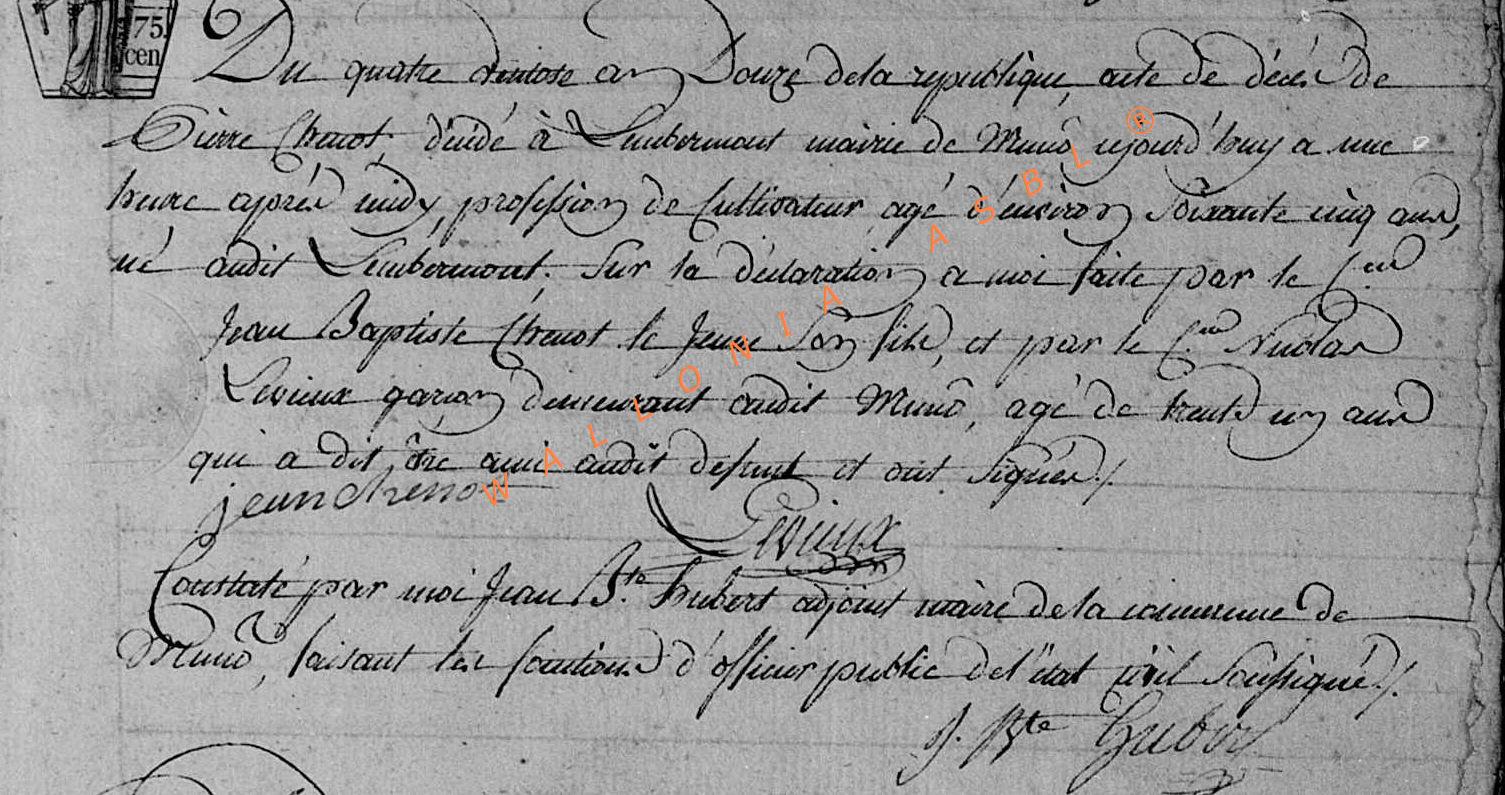 75.
cen
Du quatre ventose an Douze de la republique, acte de décès de
Pierre Chenot décédé à Lambermont mairie de Munô, ajourd'huy a une
heure après midy, profession de Cultivateur, agé d'environ Soixante cinq ans,
né audit Lambermont. Sur la déclaration a moi faite par le C.en
Jean Baptiste Chenot le Jeune Son fils, et par le C.en Nicolas
Levieux garçon demeurant audit Munô, agé de trente un ans
qui a dit être ami audit defunt et ont Signés /.
jean chenot
Levieux
Constaté par moi Jean B.te hubert adjoint maire de la commune de
Munô, faisant les fonctions d'officier public de l'état civil Soussigné /.
J. Bte Hubert
WALLONIA ASBL ®